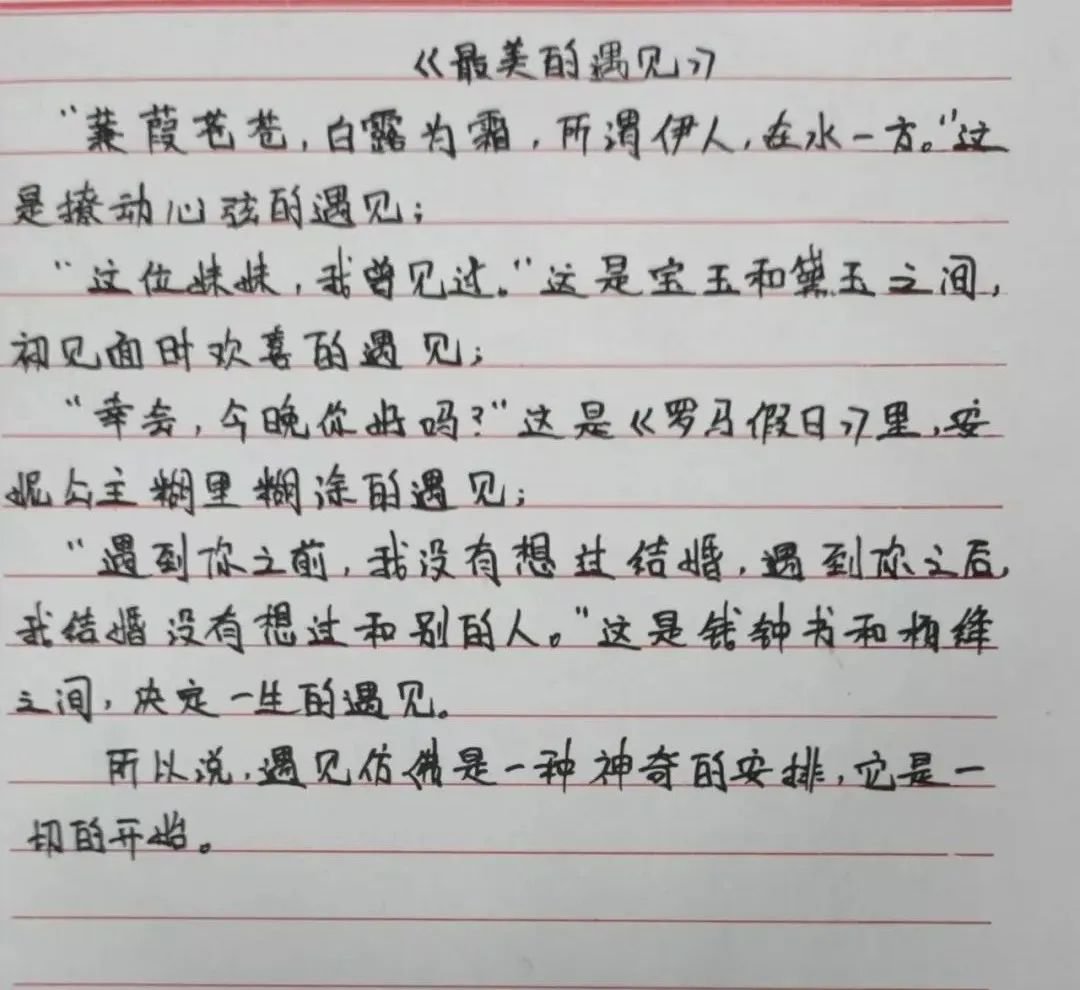 《最美的遇见》
“蒹葭苍苍，白露为霜，所谓伊人，在水一方。”这
是撩动心弦的遇见；
“这位妹妹，我曾见过。”这是宝玉和黛玉之间，
初见面时欢喜的遇见；
“幸会，今晚你好吗？”这是《罗马假日》里，安
妮公主糊里糊涂的遇见；
“遇到你之前，我没有想过结婚，遇到你之后，
我结婚没有想过和别的人。”这是钱钟书和杨绛
之间，决定一生的遇见。
所以说，遇见仿佛是一种神奇的安排，它是一
切的开始。